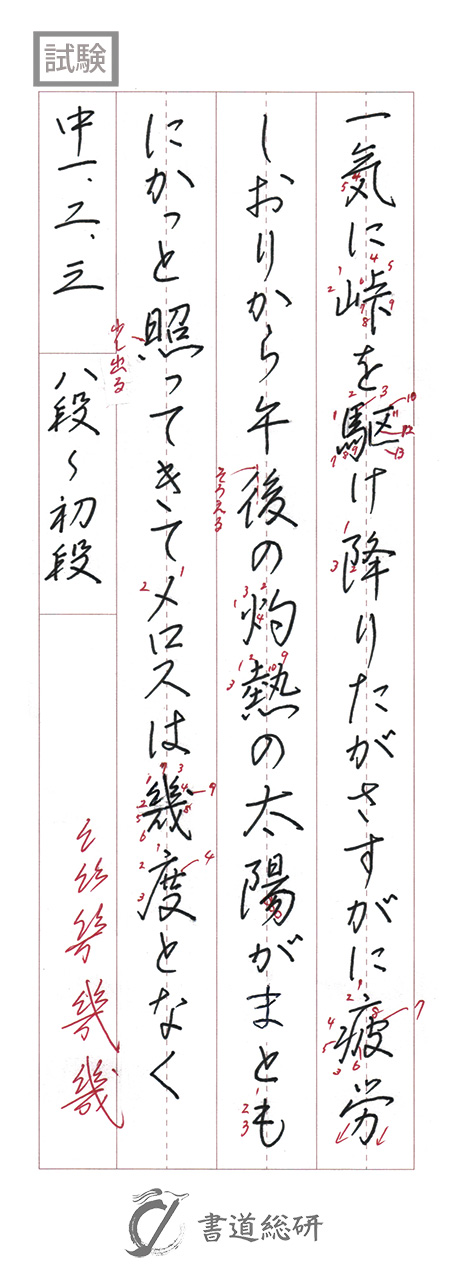 試験
一気に峠を駆け降りたがさすがに疲労
しおりから午後の灼熱の太陽がまとも
にかっと照ってきてメロスは幾度となく
中一、二、三
八段〜初段
少し出る
そろえる
幾
書道総研